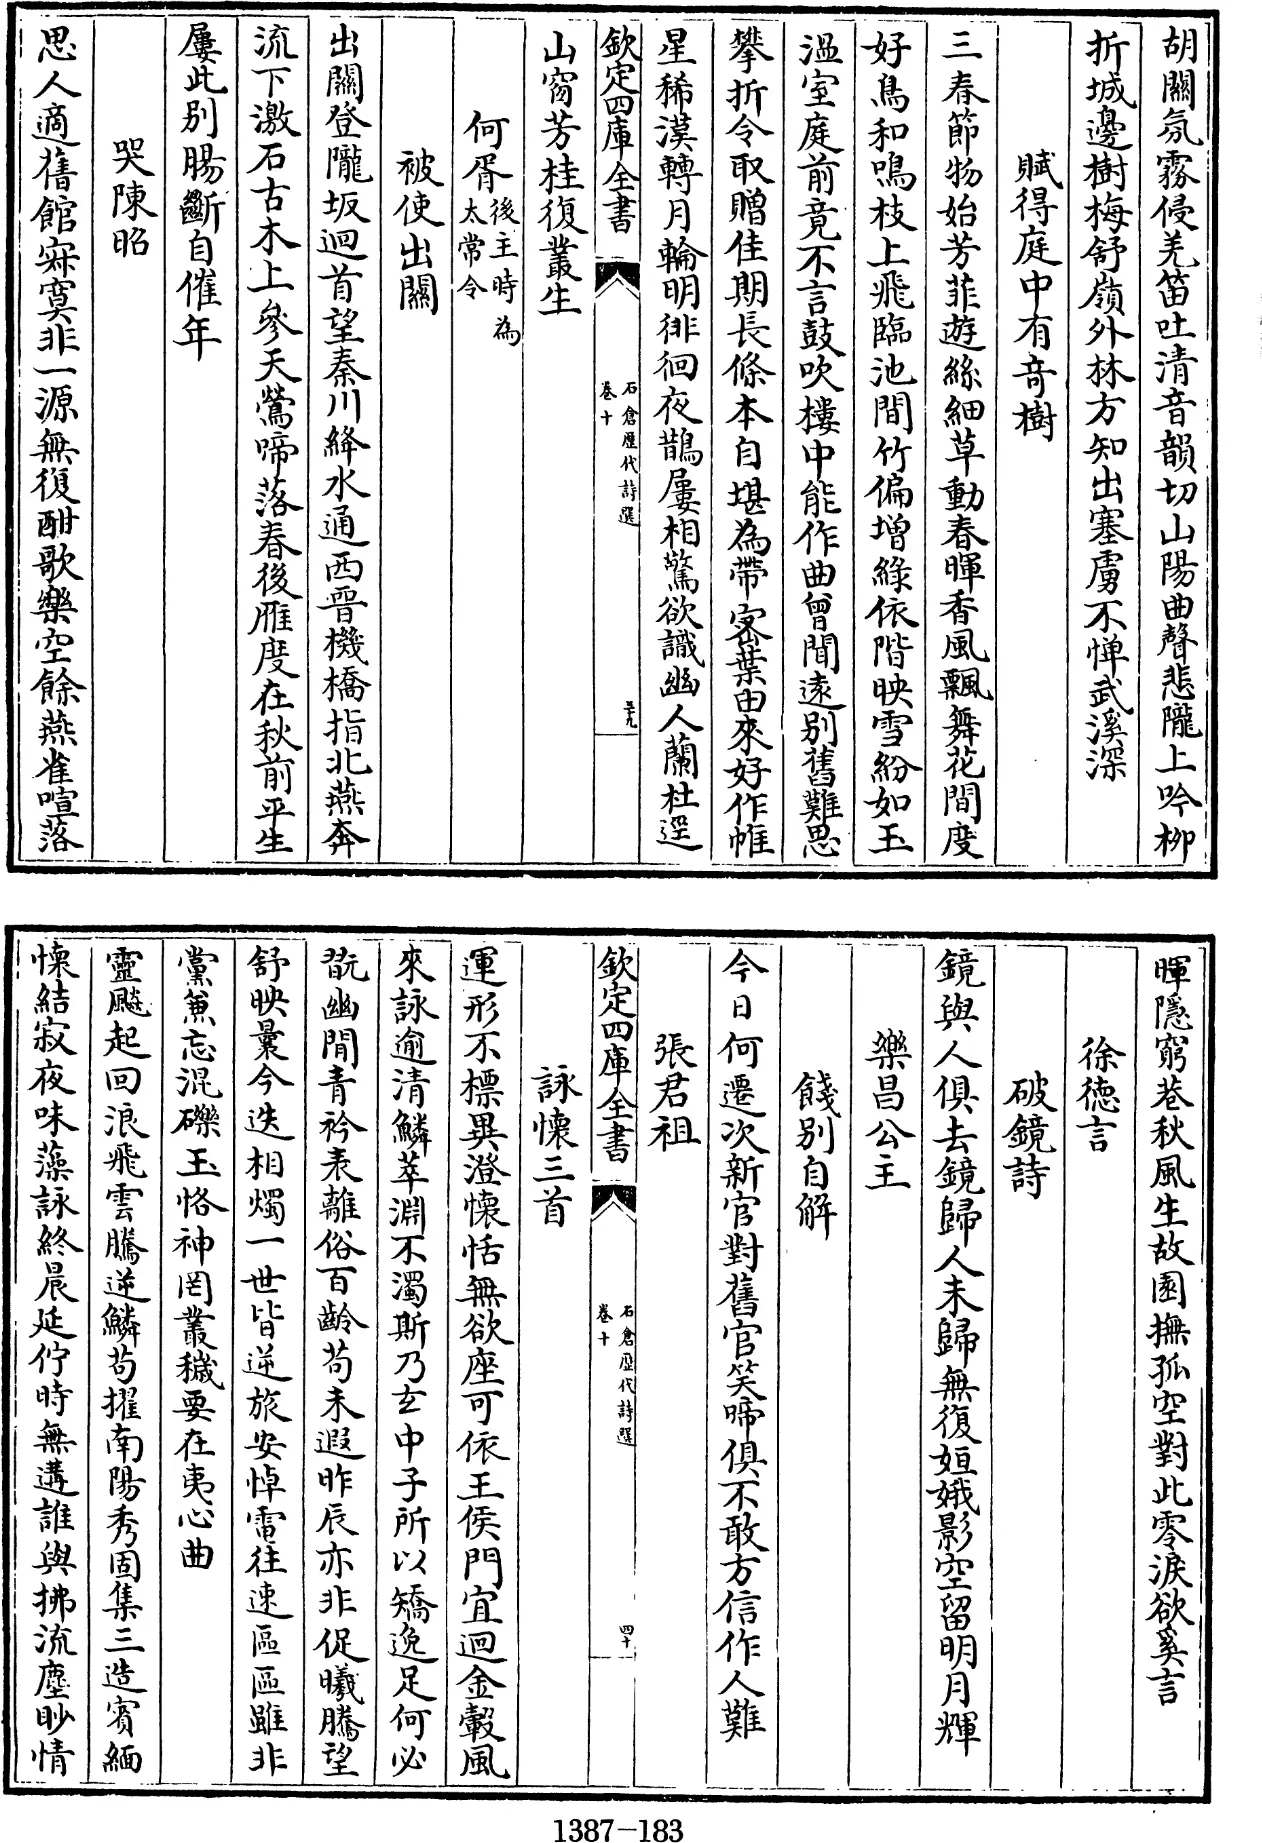 胡關氛霧侵羌笛吐清音韻切山陽曲聲悲隴上吟柳
折城邊樹梅舒嶺外林方知出塞虜不憚武溪深
賦得庭中有奇樹
三春節物始芳菲遊絲細草動春暉香風飄舞花間度
好鳥和鳴枝上飛臨池間竹偏增綠依階映雪紛如玉
溫室庭前竟不言鼓吹樓中能作曲曾聞遠別舊難思
攀折令取贈佳期長條本自堪為帶密葉由來好作帷
星稀漢轉月輪明徘徊夜鵲屢相驚欲識幽人蘭杜逕
欽定四庫全書
石倉歷代詩選
卷十
三九
山窗芳桂復叢生
何胥後主時為太常令
被使出關
出關登隴坂迴首望秦川絳水通西晉機橋指北燕奔
流下激石古木上參天鶯啼落春後雁度在秋前平生
屢此別腸斷自催年
哭陳昭
思人適舊館寂寞非一源無復酣歌樂空餘燕雀喧落
暉隱窮巷秋風生故園撫孤空對此零淚欲奚言
徐德言
破鏡詩
鏡與人俱去鏡歸人未歸無復姮娥影空留明月輝
樂昌公主
餞別自解
今日何遷次新官對舊官笑啼俱不敢方信作人難
張君祖
欽定四庫全書
石倉歷代詩選
卷十
四十
詠懷三首
運形不標異澄懷恬無欲座可依王侯門宜迴金轂風
來詠逾清鱗萃淵不濁斯乃玄中子所以矯逸足何必
翫幽閒青衿表離俗百齡苟未遐昨辰亦非促曦騰望
舒映曩今迭相燭一世皆逆旅安悼電往速區區雖非
黨兼忘混礫玉恪神罔叢穢要在夷心曲
靈飈起回浪飛雲騰逆鱗苟擢南陽秀固集三造賓緬
懷結寂夜味藻詠終晨延佇時無遘誰與拂流塵眇情
1387-183